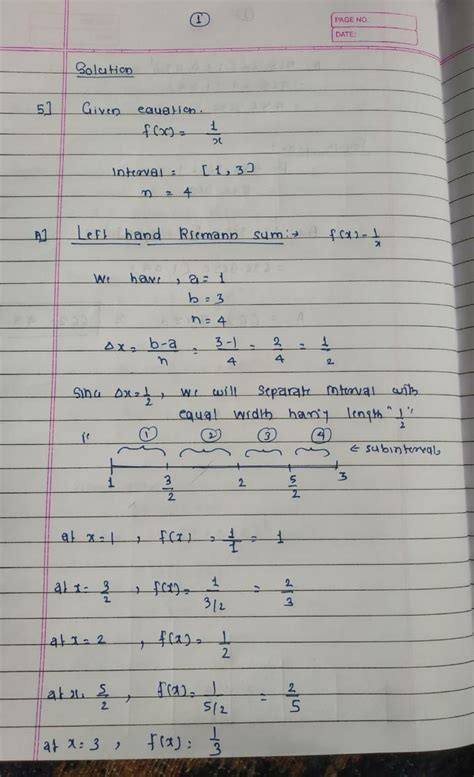 1
PAGE NO.
DATE:
Solution
5] Given equation.
f(x) = 1/x
Interval = [1, 3]
n = 4
A] Left hand Riemann sum:→ f(x) = 1/x
We have, a = 1
b = 3
n = 4
Δx = b-a/n = 3-1/4 = 2/4 = 1/2
Since Δx = 1/2, we will separate interval with
equal width having length "1/2"
① ② ③ ④ ← subinterval
1 3/2 2 5/2 3
at x = 1, f(x) = 1/1 = 1
at x = 3/2, f(x) = 1/3/2 = 2/3
at x = 2, f(x) = 1/2
at x = 5/2, f(x) = 1/5/2 = 2/5
at x = 3, f(x) = 1/3